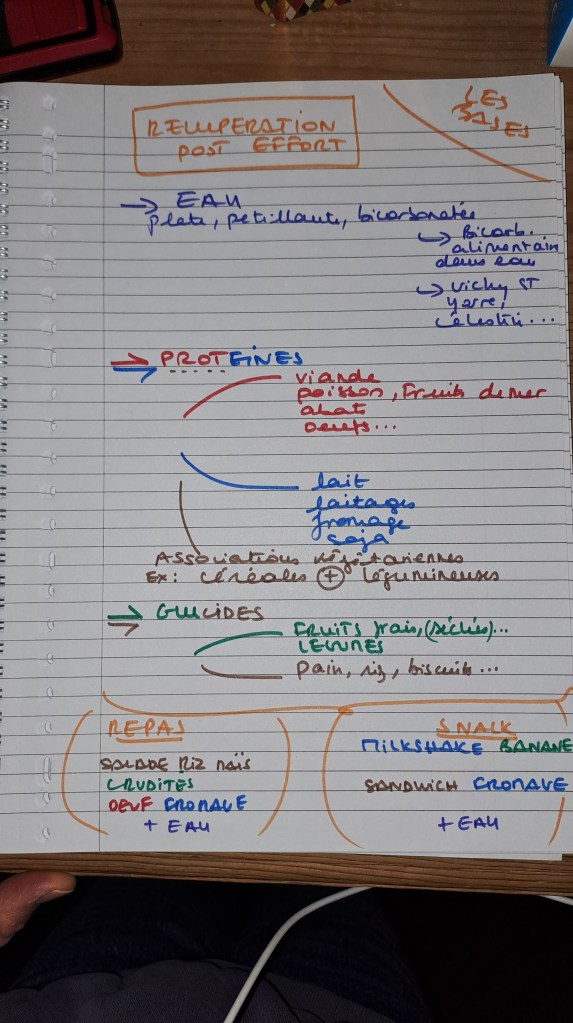 LES
BASES
RECUPERATION
POST EFFORT
→ EAU
plate, petillante, bicarbonatés
↳ Bicarb.
alimentair
dans eau
↳ Vichy ST
Yorre,
Célestin...
→ PROTEINES
viande
poisson, Fruits de mer
abat
oeufs...
lait
laitages
fromage
soja
Associations végétariennes
Ex: céréales + légumineuses
→ GLUCIDES
FRUITS frais, (séchés)...
LEGUMES
pain, riz, biscuits...
REPAS
SALADE RIZ MAÏS
CRUDITES
OEUF FROMAGE
+ EAU
SNACK
MILKSHAKE BANANE
SANDWICH FROMAGE
+ EAU